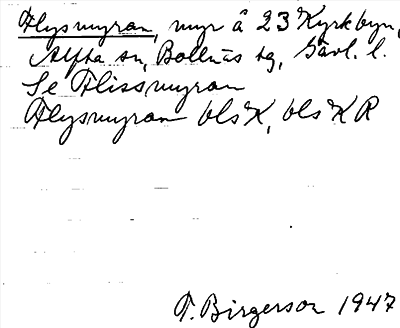 Flysmyran, myr å 23 Kyrkbyn,
Alfta sn, Bollnäs tg, Gävl. l.
Se Flissmyran
Flysmyran bls K, bls K R
T. Birgerson 1947